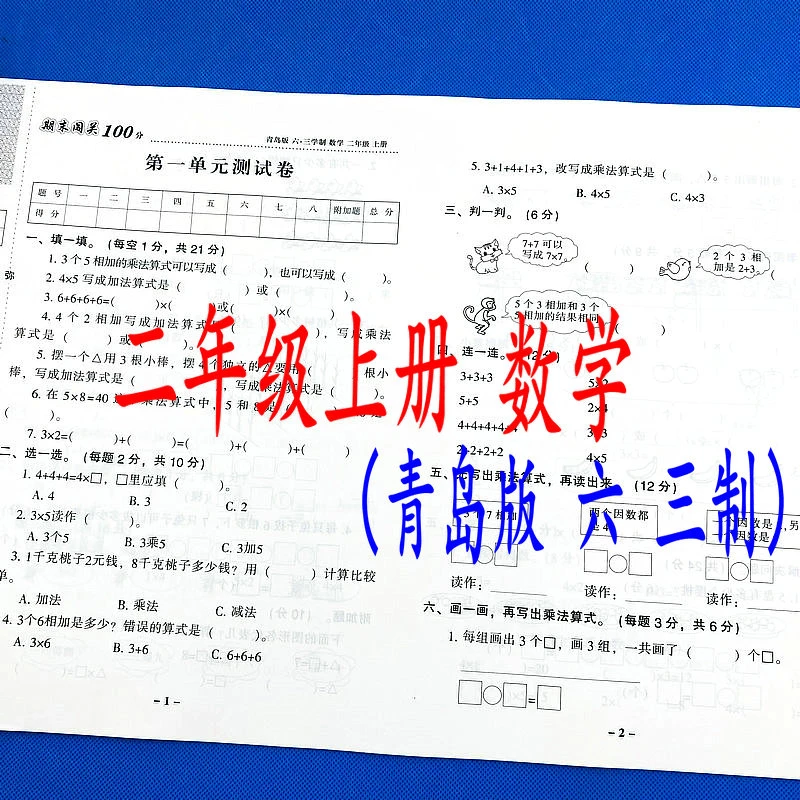 期末闯关100分
青岛版 六·三学制 数学 二年级 上册
第一单元测试卷
题号 一 二 三 四 五 六 七 八 附加题 总分
得分
一、填一填。(每空1分，共21分)
1. 3个5相加的乘法算式可以写成( )，也可以写成( )。
2. 4×5写成加法算式是( )或( )。
3. 6+6+6+6=( )×( )或( )×( )
4. 4个2相加写成加法算式是( )，写成乘法
算式是( )或( )。
5. 摆一个△用3根小棒，摆4个独立的△要用( )根小
棒，写成加法算式是( )，写成乘法算式是( )。
6. 在5×8=40这 乘法算式中，5和8是( )，40是
( )。
7. 3×2=( )+( )=( )+( )+( )
二、选一选。(每题2分，共10分)
1. 4+4+4=4×□，□里应填( )。
A. 4 B. 3 C. 2
2. 3×5读作( )。
A. 3个5 B. 3乘5 C. 3加5
3. 1千克桃子2元钱，8千克桃子多少钱？用( )计算比较
单。
A. 加法 B. 乘法 C. 减法
4. 3个6相加是多少？错误的算式是( )。
A. 3×6 B. 3+6 C. 6+6+6
-1-
5. 3+1+4+1+3，改写成乘法算式是( )。
A. 3×5 B. 4×5 C. 4×3
三、判一判。(6分)
7+7可以
写成7×7。
( )
2个3相
加是2+3。
5个3相加和3个
5相加的结果相同
( )
四、连一连。(12分)
3+3+3
5+5
4+4+4+4+4
2+2+2+2
5×2
2×4
3×3
4×5
五、先写出乘法算式，再读出来。(12分)
两个因数都
是4
□○□
□○□
读作：
读作：
读作：
六、画一画，再写出乘法算式。(每题3分，共6分)
1. 每组画出3个□，画3组，一共画了( )个□。
□○□=□
-2-
弥
二年级上册 数学
(青岛版 六 三制)